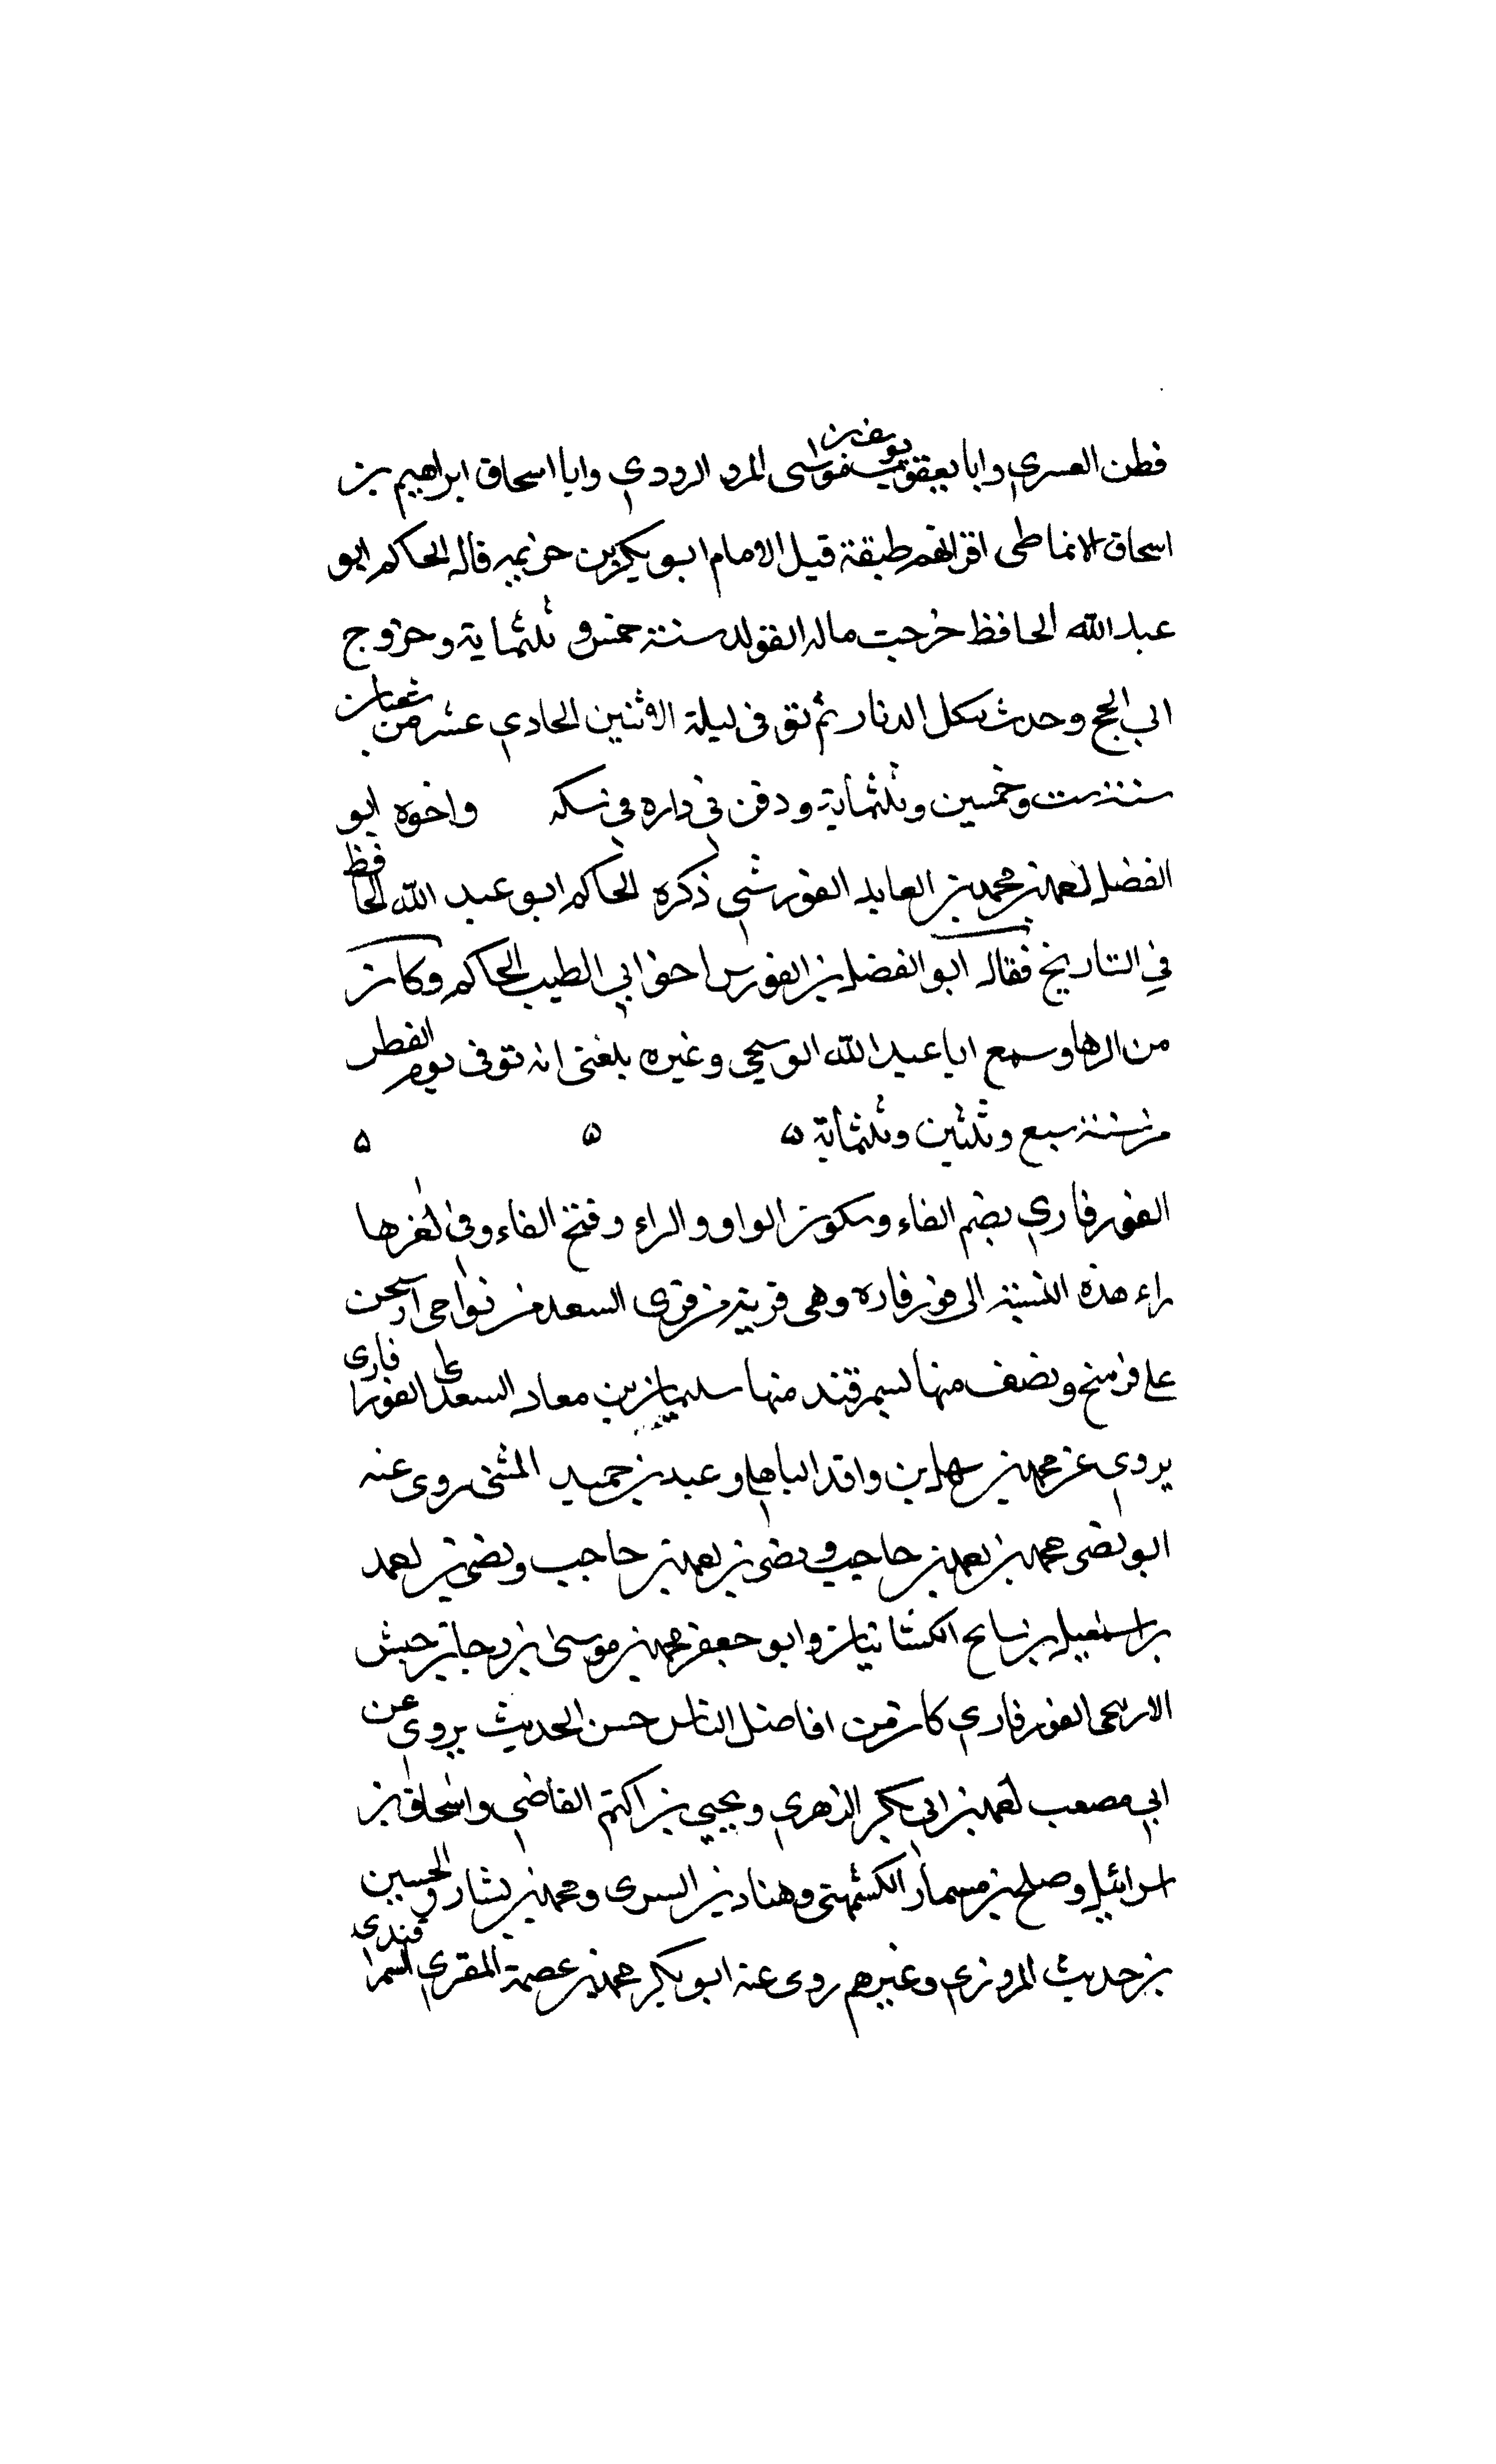 قطن القسري وابا يعقوب يوسف بن موسى المرو الرودي وابا اسحاق ابراهيم بن
اسحاق الانماطي اقرانهم طبقة قبل الامام ابو بكر بن خزيمه قال الحاكم ابو
عبد الله الحافظ خرجت ماله الفوائد سنة خمس وثلثماية وخروج
الى الحج وحدث بتلك الديار ثم توفى ليلة الاثنين الحادي عشر من شعبان
سنة ست وخمسين وثلثماية ودفن في داره في سكه واخوه ابو
الفضل احمد بن محمد بن العابد الفورشي ذكره الحاكم ابو عبد الله الحافظ
في التاريخ فقال ابو الفضل بن الفورس اخو ابي الطيب الحاكم وكان
من الزهاد سمع ابا عبد الله البوسنجي وغيره بلغنى انه توفى يوم الفطر
من سنة سبع وثلثين وثلثماية ه ه ه
الفورفاري بضم الفاء وسكون الواو والراء وفتح الفاء وفي اخرها
راء هذه النسبة الى فورفاره وهى قرية من قرى السعد من نواحى اربنجن
على فرسخ ونصف منها لسمرقند منها سليمان بن معاد السعدى الفورفارى
يروي عن محمد بن سهل بن واقد الباهلي وعبد بن حميد المثنى روى عنه
ابو نصر محمد بن احمد بن حاجب ونصر بن احمد بن حاجب ونصر بن احمد
بن اسمعيل بن سايح الكشانيان وابو جعفر محمد بن موسى بن رجا بن حبش
الاربنجى الفورفاري كان من افاضل الناس حسن الحديث يروي عن
ابي مصعب احمد بن ابي بكر الزهري ويحيي بن اكثم القاضي واسحاق بن
اسرائيل وصلح بن مسمار الكشمهني وهناد بن السرى ومحمد بن بشار والحسين
بن حريث المروزي وغيرهم روى عنه ابو بكر محمد بن عصمة المقري السمرقندى